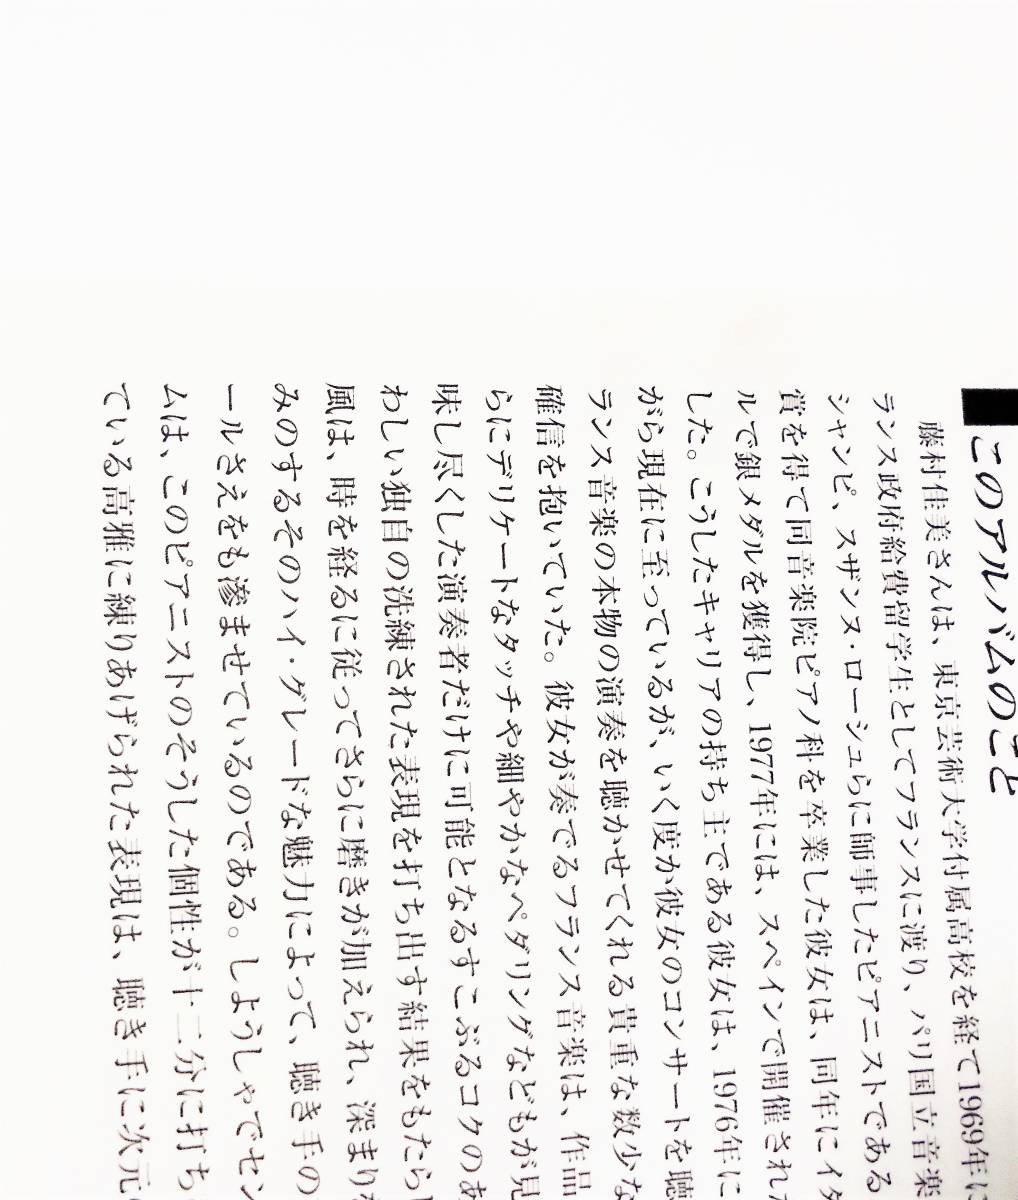 このアルバムのこと
藤村佳美さんは、東京芸術大学付属高校を経て1969年に
ランス政府給費留学生としてフランスに渡り、パリ国立音楽
シャンピ、スザンヌ・ローシュらに師事したピアニストである
賞を得て同音楽院ピアノ科を卒業した彼女は、同年にイタ
ルで銀メダルを獲得し、1977年には、スペインで開催された
した。こうしたキャリアの持ち主である彼女は、1976年に
がら現在に至っているが、いく度か彼女のコンサートを聴
ランス音楽の本物の演奏を聴かせてくれる貴重な数少な
確信を抱いていた。彼女が奏でるフランス音楽は、作品
らにデリケートなタッチや細やかなペダリングなどもが見
味し尽くした演奏者だけに可能となるすこぶるコクのあ
わしい独自の洗練された表現を打ち出す結果をもたら
風は、時を経るに従ってさらに磨きが加えられ、深まりを
みのするそのハイ・グレードな魅力によって、聴き手の
ールさえをも滲ませているのである。しようしゃでセン
ムは、このピアニストのそうした個性が十二分に打ち
ている高雅に練りあげられた表現は、聴き手に次元